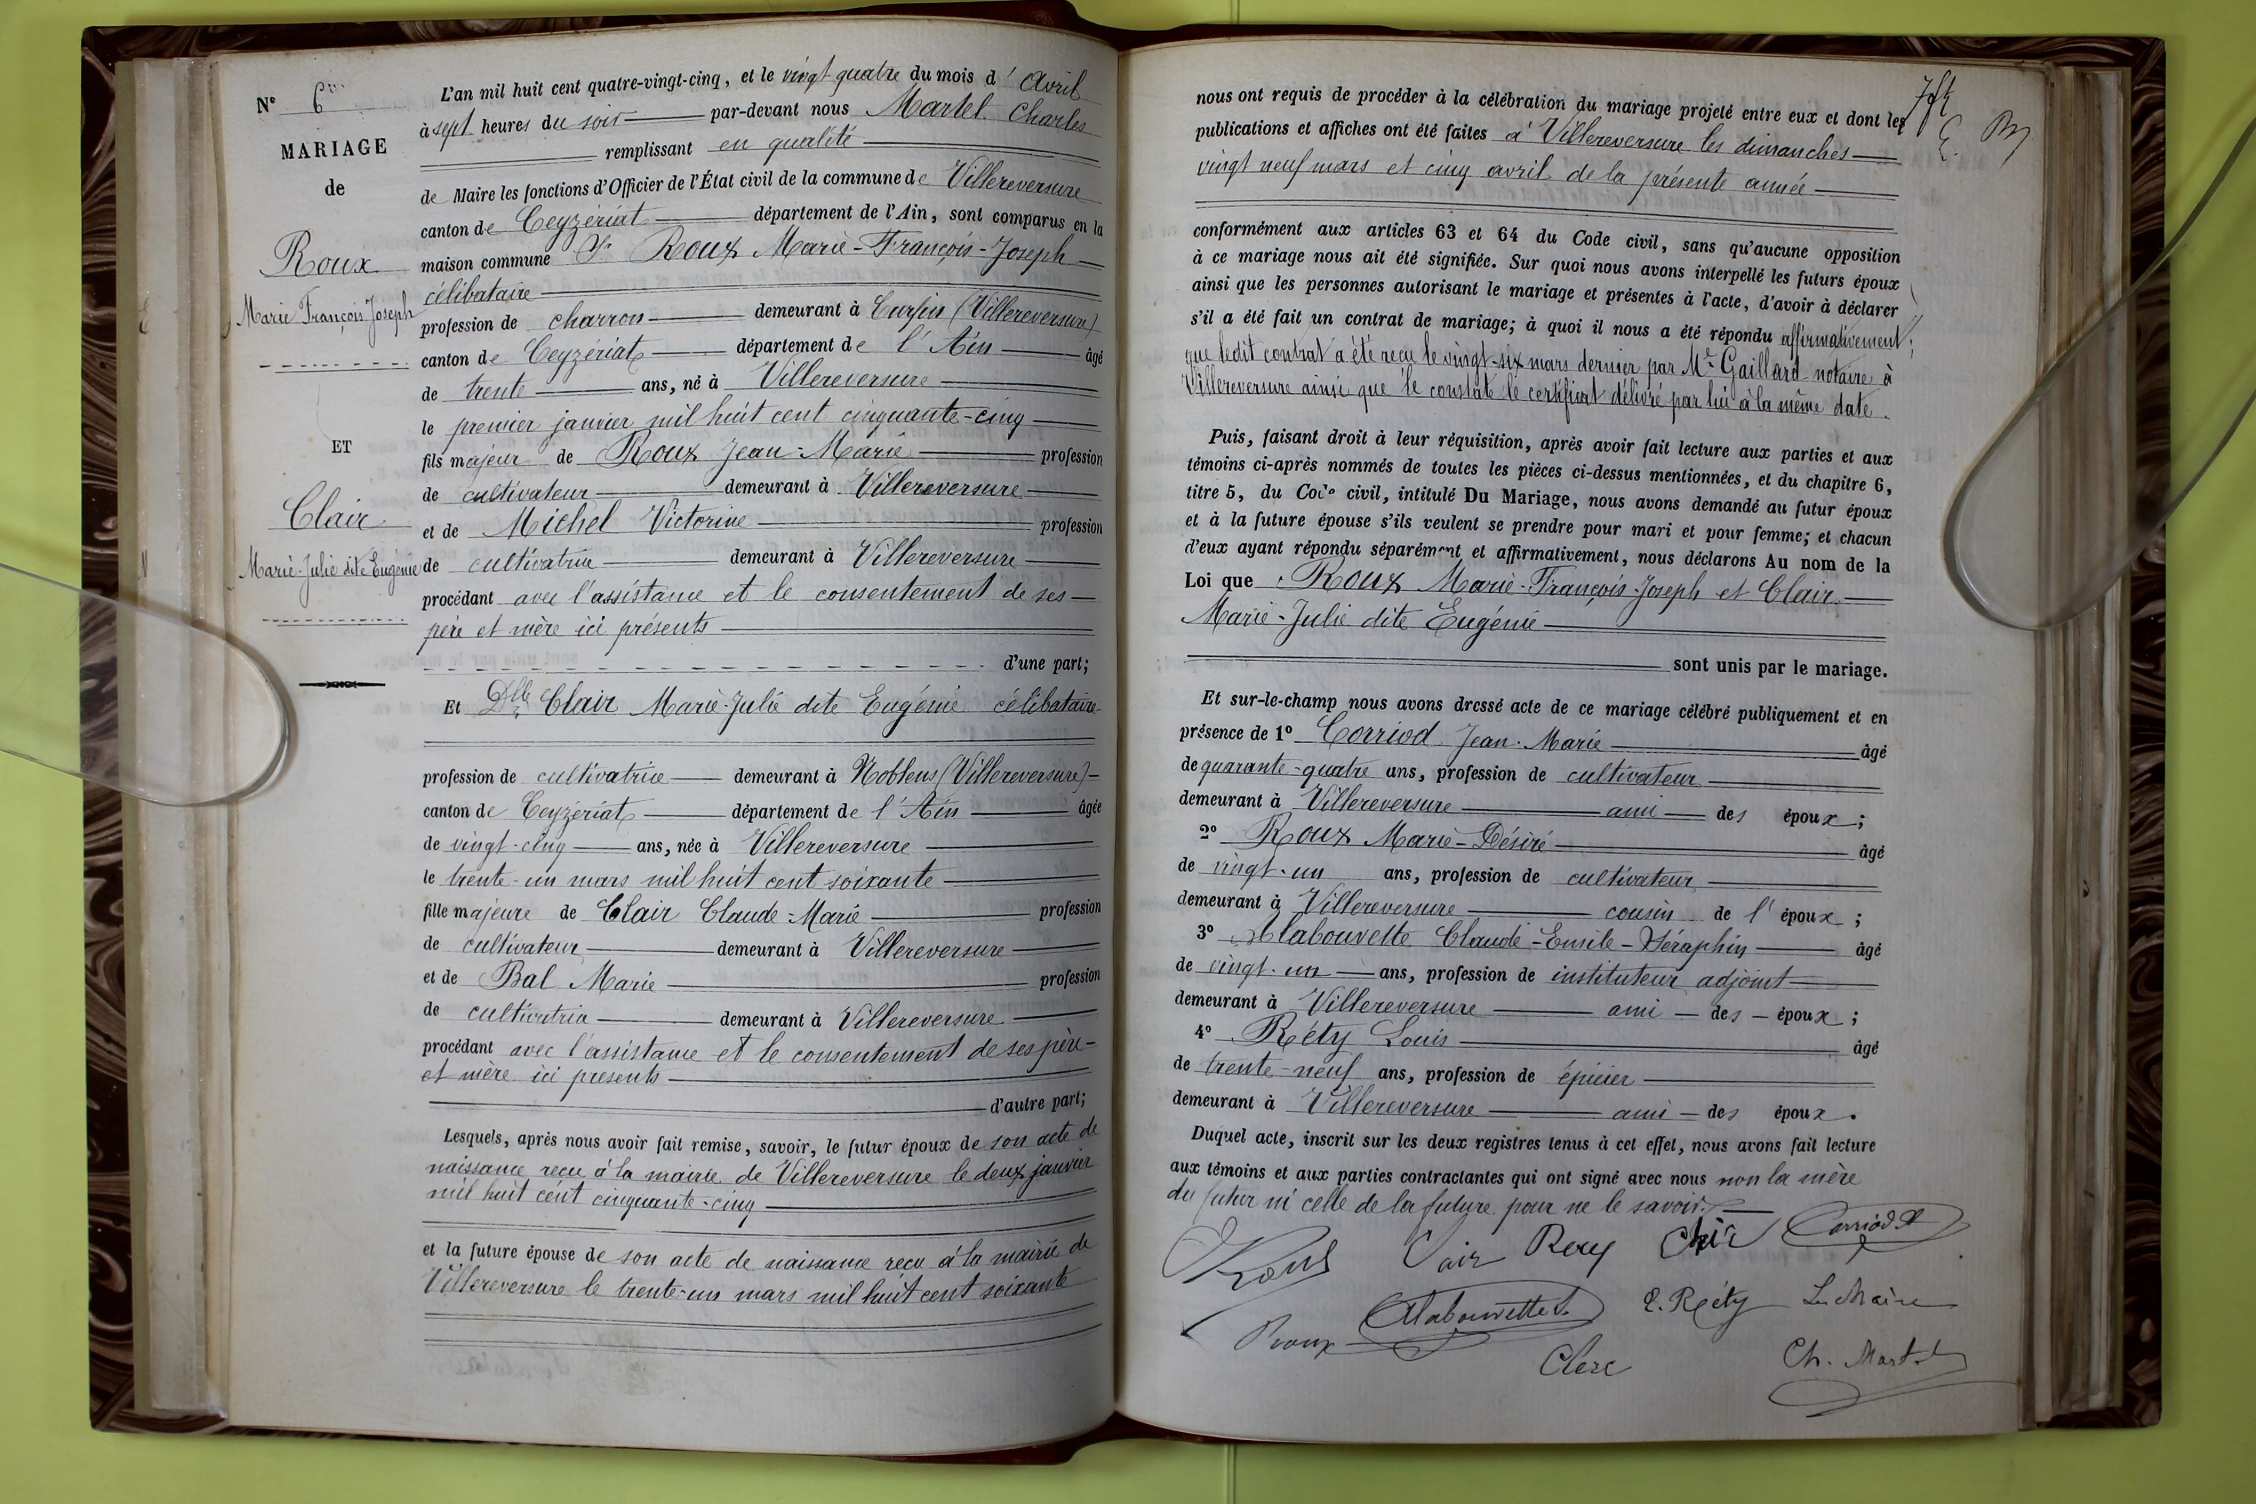 L'an mil huit cent quatre-vingt-cinq, et le vingt quatre du mois d' Avril
N° 6
à sept heures du soir par-devant nous Martel Charles
MARIAGE
remplissant en qualité
de
de Maire les fonctions d'Officier de l'État civil de la commune de Villereversure
canton de Ceyzériat département de l'Ain, sont comparus en la
Roux
maison commune Sr Roux Marie-François-Joseph
célibataire
Marie François Joseph
profession de charron demeurant à Curfin (Villereversure)
canton de Ceyzériat département de l'Ain âgé
de trente ans, né à Villereversure
le premier janvier mil huit cent cinquante-cinq
ET
fils majeur de Roux Jean-Marie profession
de cultivateur demeurant à Villereversure
Clair
et de Michel Victorine profession
Marie-Julie dite Eugénie
de cultivatrice demeurant à Villereversure
procédant avec l'assistance et le consentement de ses
père et mère ici présents
d'une part;
Et Dlle Clair Marie-Julie dite Eugénie célibataire
profession de cultivatrice demeurant à Noblens (Villereversure)
canton de Ceyzériat département de l'Ain âgée
de vingt-cinq ans, née à Villereversure
le trente-un mars mil huit cent soixante
fille majeure de Clair Claude-Marie profession
de cultivateur demeurant à Villereversure
et de Bal Marie profession
de cultivatrice demeurant à Villereversure
procédant avec l'assistance et le consentement de ses père
et mère ici présents
d'autre part;
Lesquels, après nous avoir fait remise, savoir, le futur époux de son acte de
naissance reçu à la mairie de Villereversure le deux janvier
mil huit cent cinquante-cinq
et la future épouse de son acte de naissance reçu à la mairie de
Villereversure le trente-un mars mil huit cent soixante
nous ont requis de procéder à la célébration du mariage projeté entre eux et dont les
publications et affiches ont été faites à Villereversure les dimanches
vingt neuf mars et cinq avril de la présente année
conformément aux articles 63 et 64 du Code civil, sans qu'aucune opposition
à ce mariage nous ait été signifiée. Sur quoi nous avons interpellé les futurs époux
ainsi que les personnes autorisant le mariage et présentes à l'acte, d'avoir à déclarer
s'il a été fait un contrat de mariage; à quoi il nous a été répondu affirmativement;
que ledit contrat a été reçu le vingt-six mars dernier par Me Gaillard notaire à
Villereversure ainsi que le constate le certificat délivré par lui à la même date.
Puis, faisant droit à leur réquisition, après avoir fait lecture aux parties et aux
témoins ci-après nommés de toutes les pièces ci-dessus mentionnées, et du chapitre 6,
titre 5, du Code civil, intitulé Du Mariage, nous avons demandé au futur époux
et à la future épouse s'ils veulent se prendre pour mari et pour femme; et chacun
d'eux ayant répondu séparément et affirmativement, nous déclarons Au nom de la
Loi que Roux Marie-François-Joseph et Clair
Marie-Julie dite Eugénie
sont unis par le mariage.
Et sur-le-champ nous avons dressé acte de ce mariage célébré publiquement et en
présence de 1° Corriod Jean-Marie âgé
de quarante-quatre ans, profession de cultivateur
demeurant à Villereversure ami des époux;
2° Roux Marie-Désiré âgé
de vingt-un ans, profession de cultivateur
demeurant à Villereversure cousin de l'époux;
3° Alabouvette Claude-Emile-Séraphin âgé
de vingt-un ans, profession de instituteur adjoint
demeurant à Villereversure ami des époux;
4° Réty Louis âgé
de trente-neuf ans, profession de épicier
demeurant à Villereversure ami des époux.
Duquel acte, inscrit sur les deux registres tenus à cet effet, nous avons fait lecture
aux témoins et aux parties contractantes qui ont signé avec nous non la mère
du futur ni celle de la future pour ne le savoir.
Roux Clair Roux Clair Corriod
Alabouvette L. Réty Le Maire
Roux
Clerc Ch. Martel